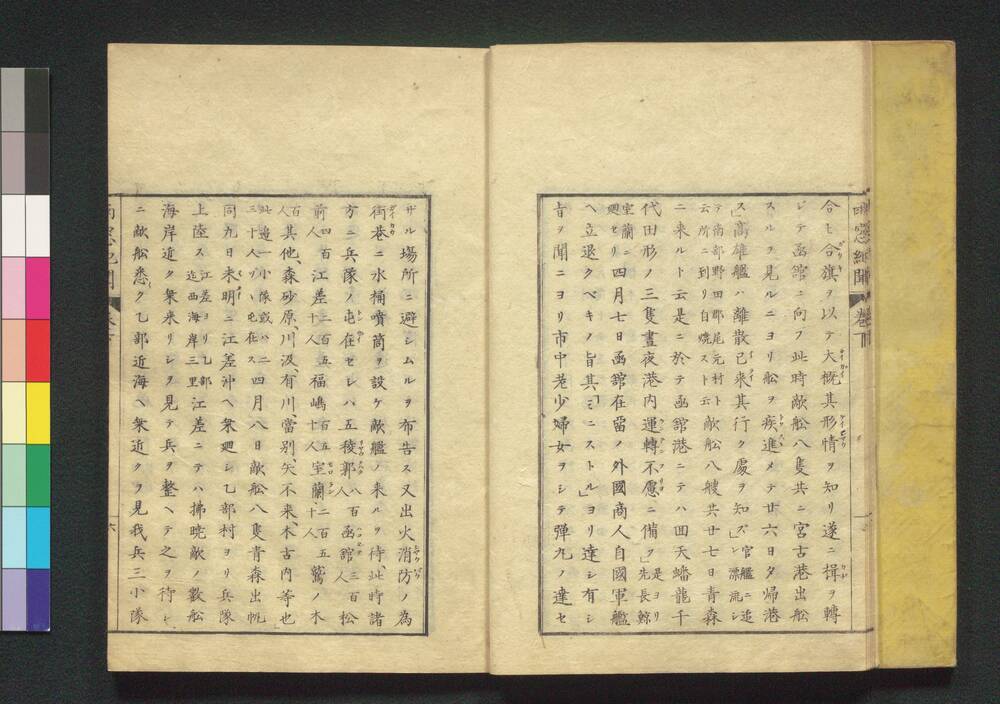 合セ合旗ヲ以テ大概其形情ヲ知リ遂ニ楫ヲ轉
シテ函館ニ向フ此時敵舩八隻共ニ宮古港出舩
スルヲ見ルニヨリ舩ヲ疾進メテ廿六日夕帰港
ス」高雄艦ハ離散已来其行ク處ヲ知ズ」官艦ニ追レ漂流シ
テ南部野田郡尾元村ト云所ニ到リ自焼スト云敵舩八艘共廿七日青森
ニ来ルト云是ニ於テ函館港ニテハ回天蟠龍千
代田形ノ三隻晝夜港内運轉不慮ニ備フ先是ヨリ長鯨
室蘭ニ廻セリ四月七日函館在畱ノ外國商人自國軍艦
ヘ立退クベキノ旨其「ミニストル」ヨリ達シ有シ
旨ヲ聞ニヨリ市中老少婦女ヲシテ弾丸ノ達セ
ザル場所ニ避シムルヲ布告ス又出火消防ノ為
街巷ニ水桶噴筒ヲ設ケ敵艦ノ来ルヲ待、此時諸
方ニ兵隊ノ屯在セシハ五稜郭八百人函館三百人松
前四百人江差二百五十人福嶋百五十人室蘭二百五十人鷲ノ木
百人其他、森砂原、川汲、有川、當別、矢不来、木古内等也
此邊一小隊或ハ二三十人ツヽ屯在ス四月八日敵舩八隻青森出帆
同九日未明ニ江差沖ヘ乗廻シ乙部村ヨリ兵隊
上陸ス江差ヨリ乙部迄西海岸三里江差ニテハ拂暁敵ノ數舩
海岸近ク乗来リシヲ見テ兵ヲ整ヘテ之ヲ待シ
ニ敵舩悉ク乙部近海ヘ乗近クヲ見我兵三小隊